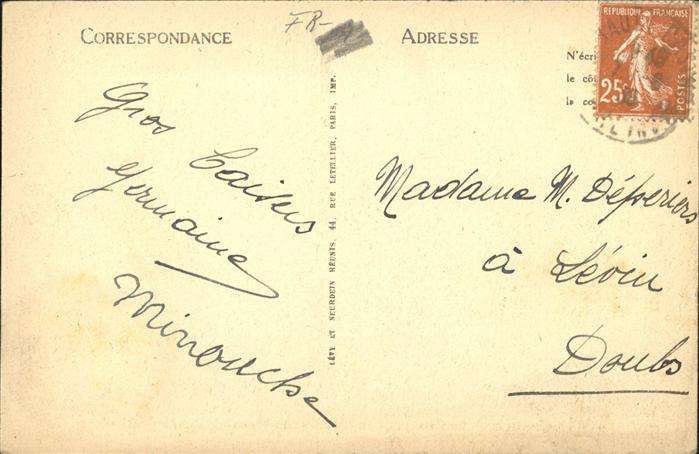 FR-
CORRESPONDANCE
Gros Baisers
Germaine
Minouche
LÉVY ET NEURDEIN RÉUNIS, 44, RUE LETELLIER, PARIS, IMP.
ADRESSE
N'écri
le cô
la co
REPUBLIQUE FRANÇAISE
25c
POSTES
Madame M.
à Lévin
Doubs